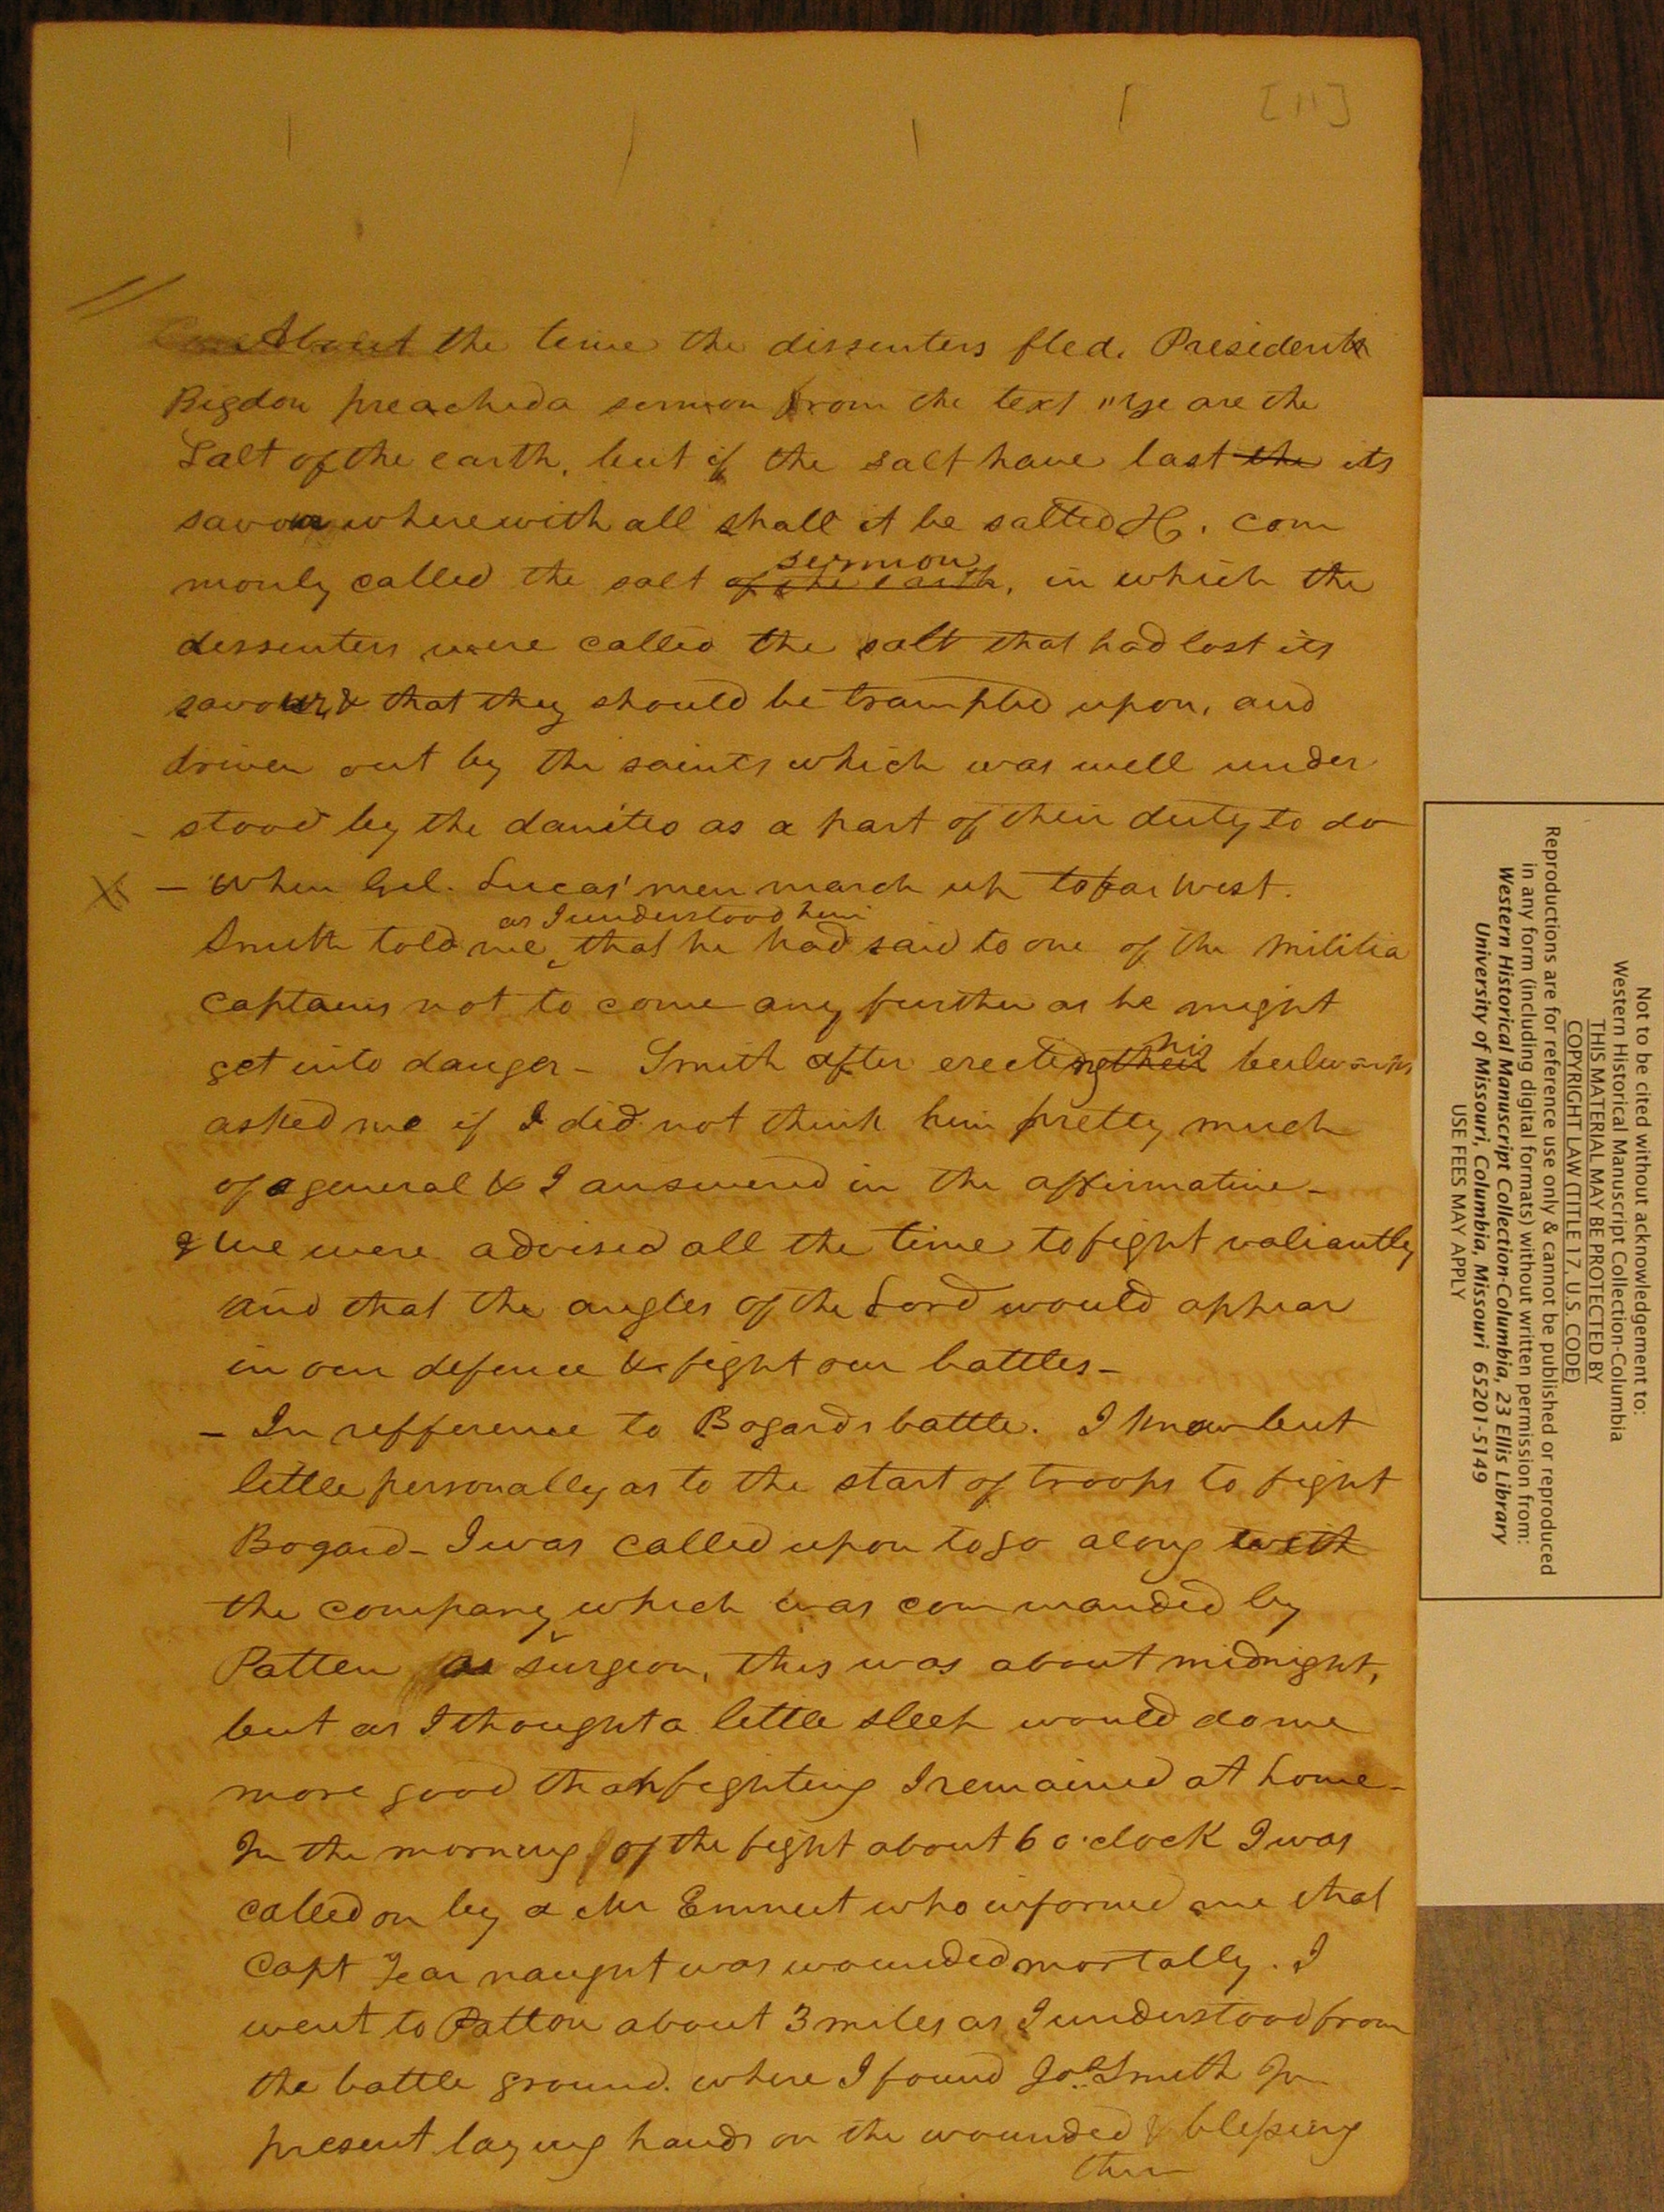 [11]
About the time the dissenters fled, President
Rigdon preached a sermon from the text "Ye are the
Salt of the earth, but if the salt have lost the its
savour wherewith all shall it be salted &c. com
monly called the salt of the earth sermon, in which the
dessenters were called the salt that had lost its
savour, & that they should be trampled upon, and
driven out by the saints which was well under
stood by the danites as a part of their duty to do
— When Gel. Lucas' men march up to far West.
Smith told me as I understood him that he had said to one of the Militia
captains not to come any further as he might
get into danger – Smith after erecting their his bulwarks
asked me if I did not think him pretty much
of a general & I answered in the affirmative –
& We were advised all the time to fight valiantly
and that the angles of the Lord would appear
in our defence & fight our battles –
– In refference to Bogards battle. I know but
little personally as to the start of troops to fight
Bogard – I was called upon to go along with
the company, which was commanded by
Patten as surgeon, this was about midnight,
but as I thought a little sleep would do me
more good than fighting I remained at home –
In the morning of the fight about 6 o'clock I was
called on by a Mr Emmet who informed me that
Capt Fear naught was wounded mortally. I
went to Patton about 3 miles as I understood from
the battle ground. where I found Jos. Smith Jr
present laying hands on the wounded & blessing
them
Not to be cited without acknowledgement to:
Western Historical Manuscript Collection-Columbia
THIS MATERIAL MAY BE PROTECTED BY
COPYRIGHT LAW (TITLE 17, U.S. CODE)
Reproductions are for reference use only & cannot be published or reproduced
in any form (including digital formats) without written permission from:
Western Historical Manuscript Collection-Columbia, 23 Ellis Library
University of Missouri, Columbia, Missouri 65201-5149
USE FEES MAY APPLY